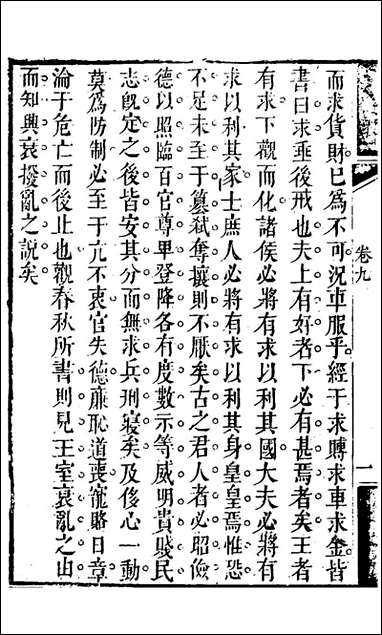 卷九
一
而求貨財已爲不可況車服乎經于求賻求車求金皆
書曰求垂後戒也夫上有好者下必有甚焉者矣王者
有求下觀而化諸侯必將有求以利其國大夫必將有
求以利其家士庶人必將有求以利其身皇皇焉惟恐
不足未至于篡弑奪攘則不厭矣古之君人者必昭儉
德以照臨百官尊卑登降各有度數示等威明貴賤民
志旣定之後皆安其分而無求兵刑寢矣及侈心一動
莫爲防制必至于亢不衷官失德廉恥道喪寵賂日章
淪于危亡而後止也觀春秋所書則見王室衰亂之由
而知興衰撥亂之說矣